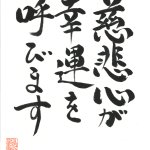 慈悲心が
幸運を
呼びます